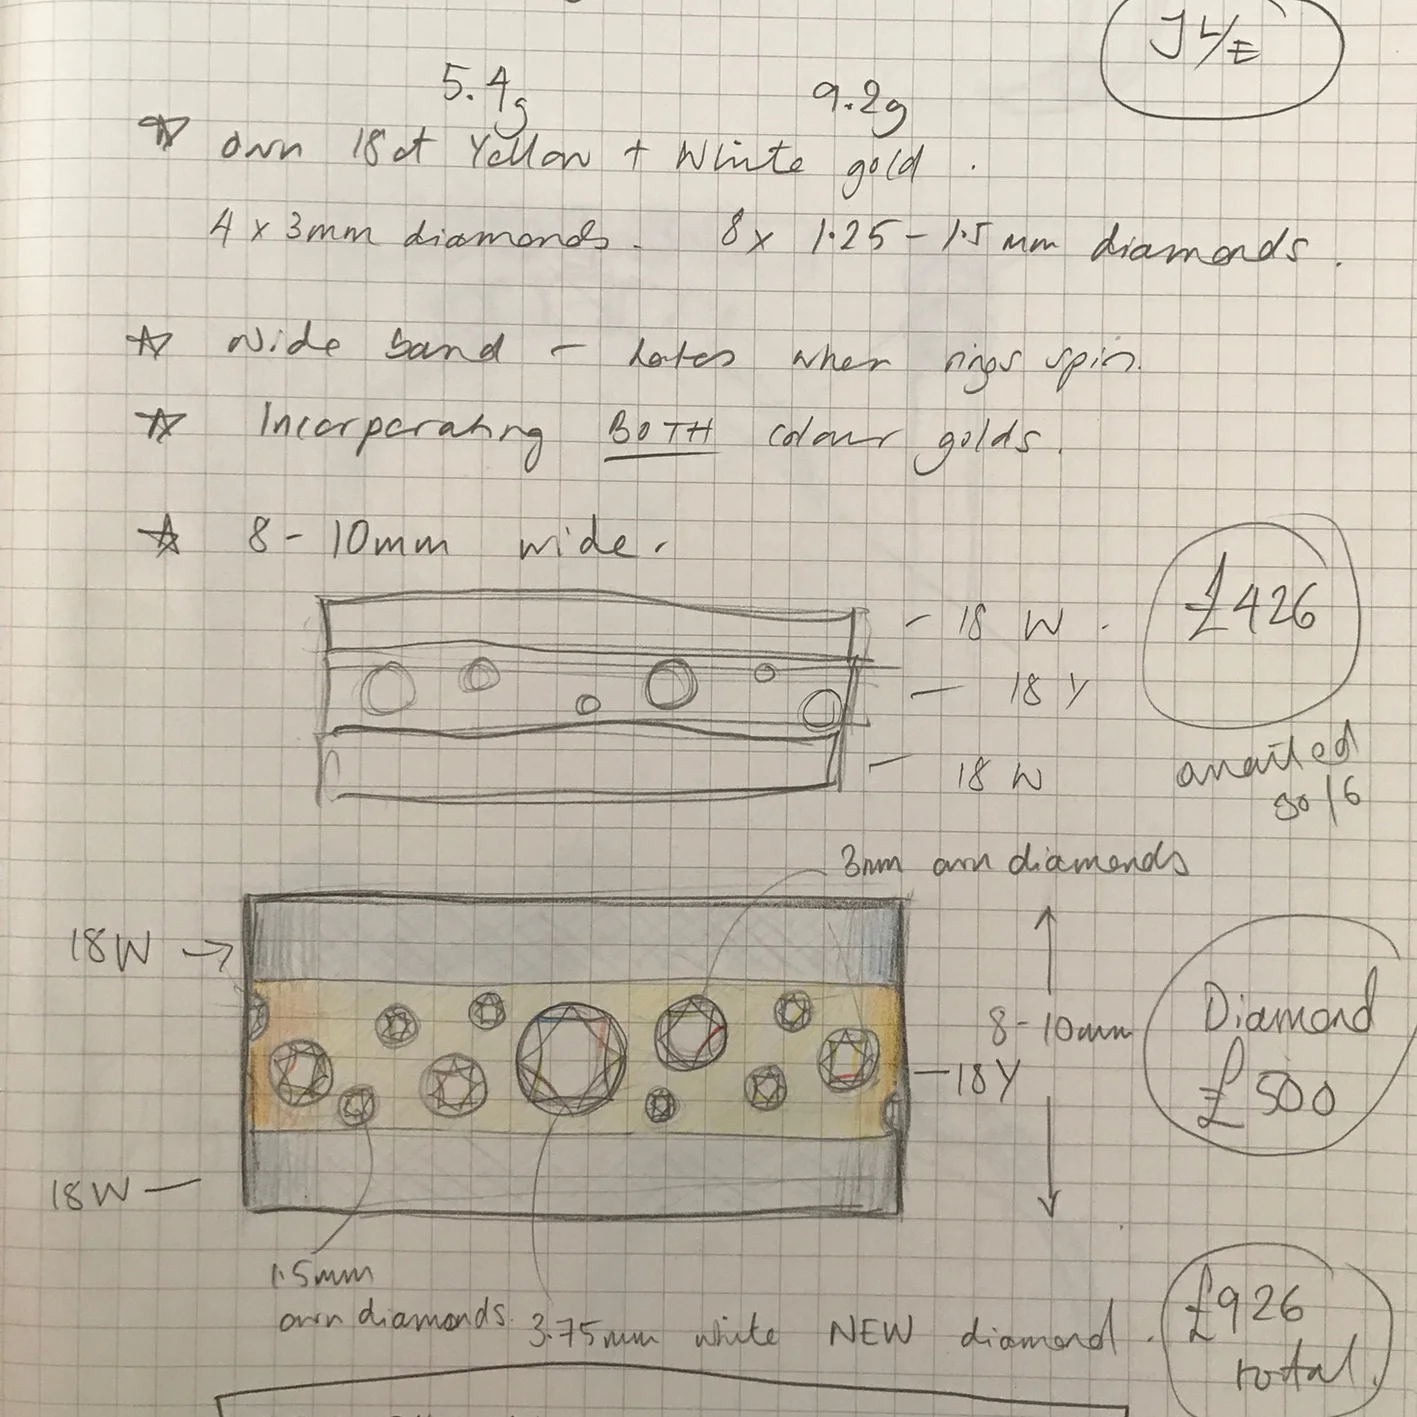 J L/E
5.4g 9.2g
☆ own 18ct Yellow + White gold.
4 x 3mm diamonds. 8x 1.25 - 1.5mm diamonds.
☆ Wide band - hates when rings spin.
☆ Incorporating BOTH colour golds.
☆ 8-10mm wide.
- 18 W.
£426
- 18 Y
- 18 W
emailed
30/6
3mm own diamonds
18W →
8-10mm
- 18Y
Diamond
£500
18W -
1.5mm
own diamonds.
3.75mm white NEW diamond.
£926
total.